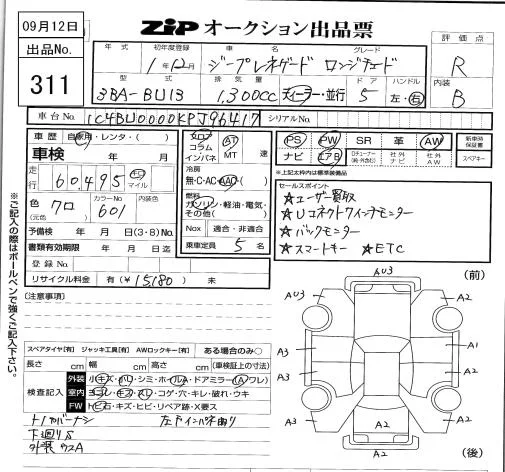 09月12日
ZIP オークション出品票
出品No.
311
評価点
R
内装
B
年式
初年度登録
車名
グレード
1年12月
ジープレネゲード ロンジチュード
型式
排気量
ドア
ハンドル
3BA-BU13
1,300cc
ディーラー・並行
5
左・右
車台No.
1C4BU0000KPJ96417
シリアルNo.
車歴
自家用・レンタ・( )
車検
年 月
走行
60,495
km
マイル
色
(元色)
クロ
カラーNo
601
内装色
予備検 年 月 日(3・8)No.
書類有効期限 年 月 日迄
登録No.
リサイクル料金 有(¥ 15,180 ) 無
フロア
コラム
インパネ
AT
MT
速
冷房
無・C・AC・AAC
燃料
ガソリン・軽油・電気・
その他( )
Nox
適合・非適合
乗車定員
5 名
PS
PW
SR
革
AW
ナビ
エアB
Dチューナー
(純・外含む)
社外
ナビ
社外
AW
新車時
保証書
スペアキー
※上記太枠内は標準装備品
セールスポイント
★ユーザー買取
★Uコネクトウィンチモニター
★バックモニター
★スマートキー ★ETC
※ご記入の際はボールペンで強くご記入下さい。
[注意事項]
スペアタイヤ[有] ジャッキ工具[有] AWロックキー[有] ある場合のみ○
長さ cm 幅 cm 高さ cm (車検証上の寸法)
検査記入
外装
小キズ・ハリ・シミ・ホイルA・ドアミラー(A・ワレ)
室内
ヨゴレ・キズ・スリ・コゲ・穴・キレ・破れ・ウキ
FW
トビ石・キズ・ヒビ・リペア跡・X要ス
トノカバーナシ
下廻りS
外装ウスA
(前)
AU3
AU3
A2
A3
A1
A3
A2
A2
A2
A2
(後)